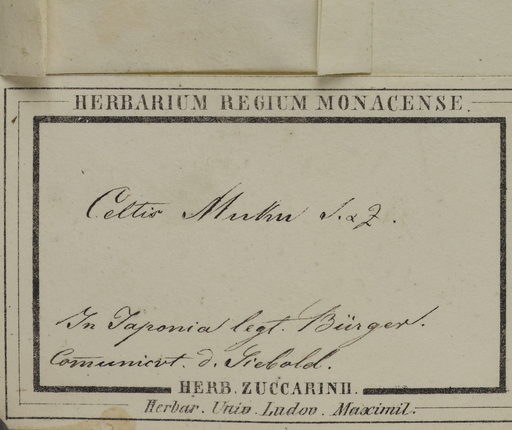 HERBARIUM REGIUM MONACENSE.
Celtis Muku S. & Z.
In Japonia legt. Bürger.
Comunicvt. d. Siebold.
HERB. ZUCCARINII.
Herbar. Univ. Ludov. Maximil.